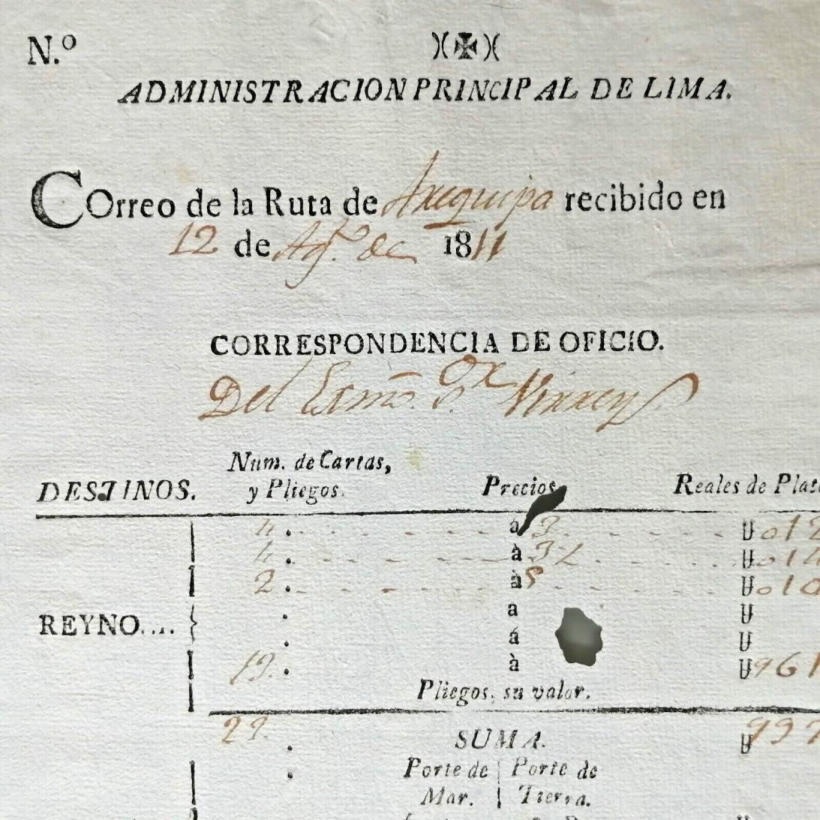 N.º
ADMINISTRACION PRINCIPAL DE LIMA.
COrreo de la Ruta de Arequipa recibido en
12 de Ag.to de 1811
CORRESPONDENCIA DE OFICIO.
Del Exmõ. S.or Virrey
Num. de Cartas,
DESTINOS. y Pliegos. Precios Reales de Plat
4. à 3 U 012
4. à 3½ U 014
2. à 5 U 010
a U
REYNO....
á U
19. à U 961
Pliegos, su valor.
29. SUMA. U 997
Porte de Porte de
Mar. Tierra.